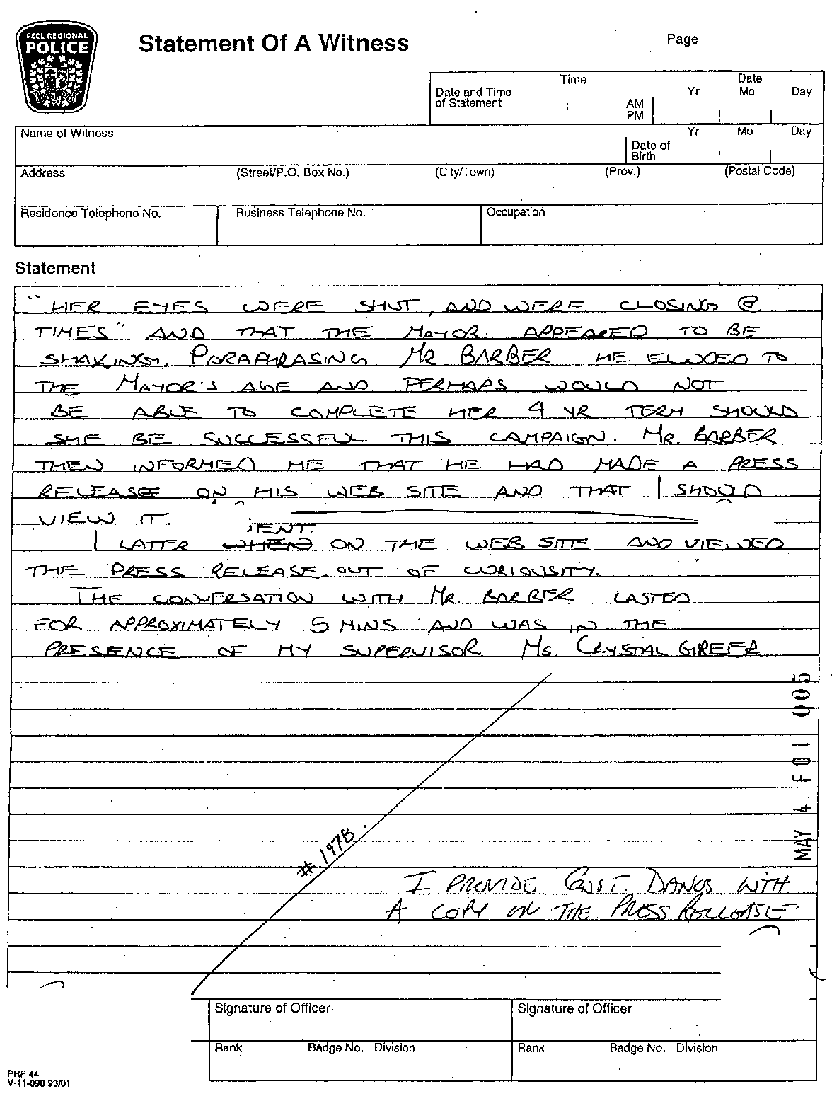 PEEL REGIONAL
POLICE
Statement Of A Witness
Page
Date and Time
of Statement
Time
:
AM
PM
Date
Yr Mo Day
Name of Witness
Date of
Birth
Yr Mo Day
Address (Street/P.O. Box No.) (City/Town) (Prov.) (Postal Code)
Residence Telephone No. Business Telephone No. Occupation
Statement
"HER EYES WERE SHUT, AND WERE CLOSING @
TIMES" AND THAT THE MAYOR APPEARED TO BE
SHAKING. PARAPHRASING MR BARBER HE ELUDED TO
THE MAYOR'S AGE AND PERHAPS WOULD NOT
BE ABLE TO COMPLETE HER 4 YR TERM SHOULD
SHE BE SUCCESSFUL THIS CAMPAIGN. MR. BARBER
THEN INFORMED ME THAT HE HAD MADE A PRESS
RELEASE ON HIS WEB SITE AND THAT I SHOULD
VIEW IT.
I LATER WENT ON THE WEB SITE AND VIEWED
THE PRESS RELEASE OUT OF CURIOUSITY.
THE CONVERSATION WITH MR. BARBER LASTED
FOR APPROXIMATELY 5 MINS AND WAS IN THE
PRESENCE OF MY SUPERVISOR MS. CRYSTAL GREER
# 1978
I PROVIDE CONST. DANGS WITH
A COPY ON THE PRESS RELEASE
MAY 4 F01 005
Signature of Officer Signature of Officer
Rank Badge No. Division Rank Badge No. Division
PRP 44
V-11-090 93/01